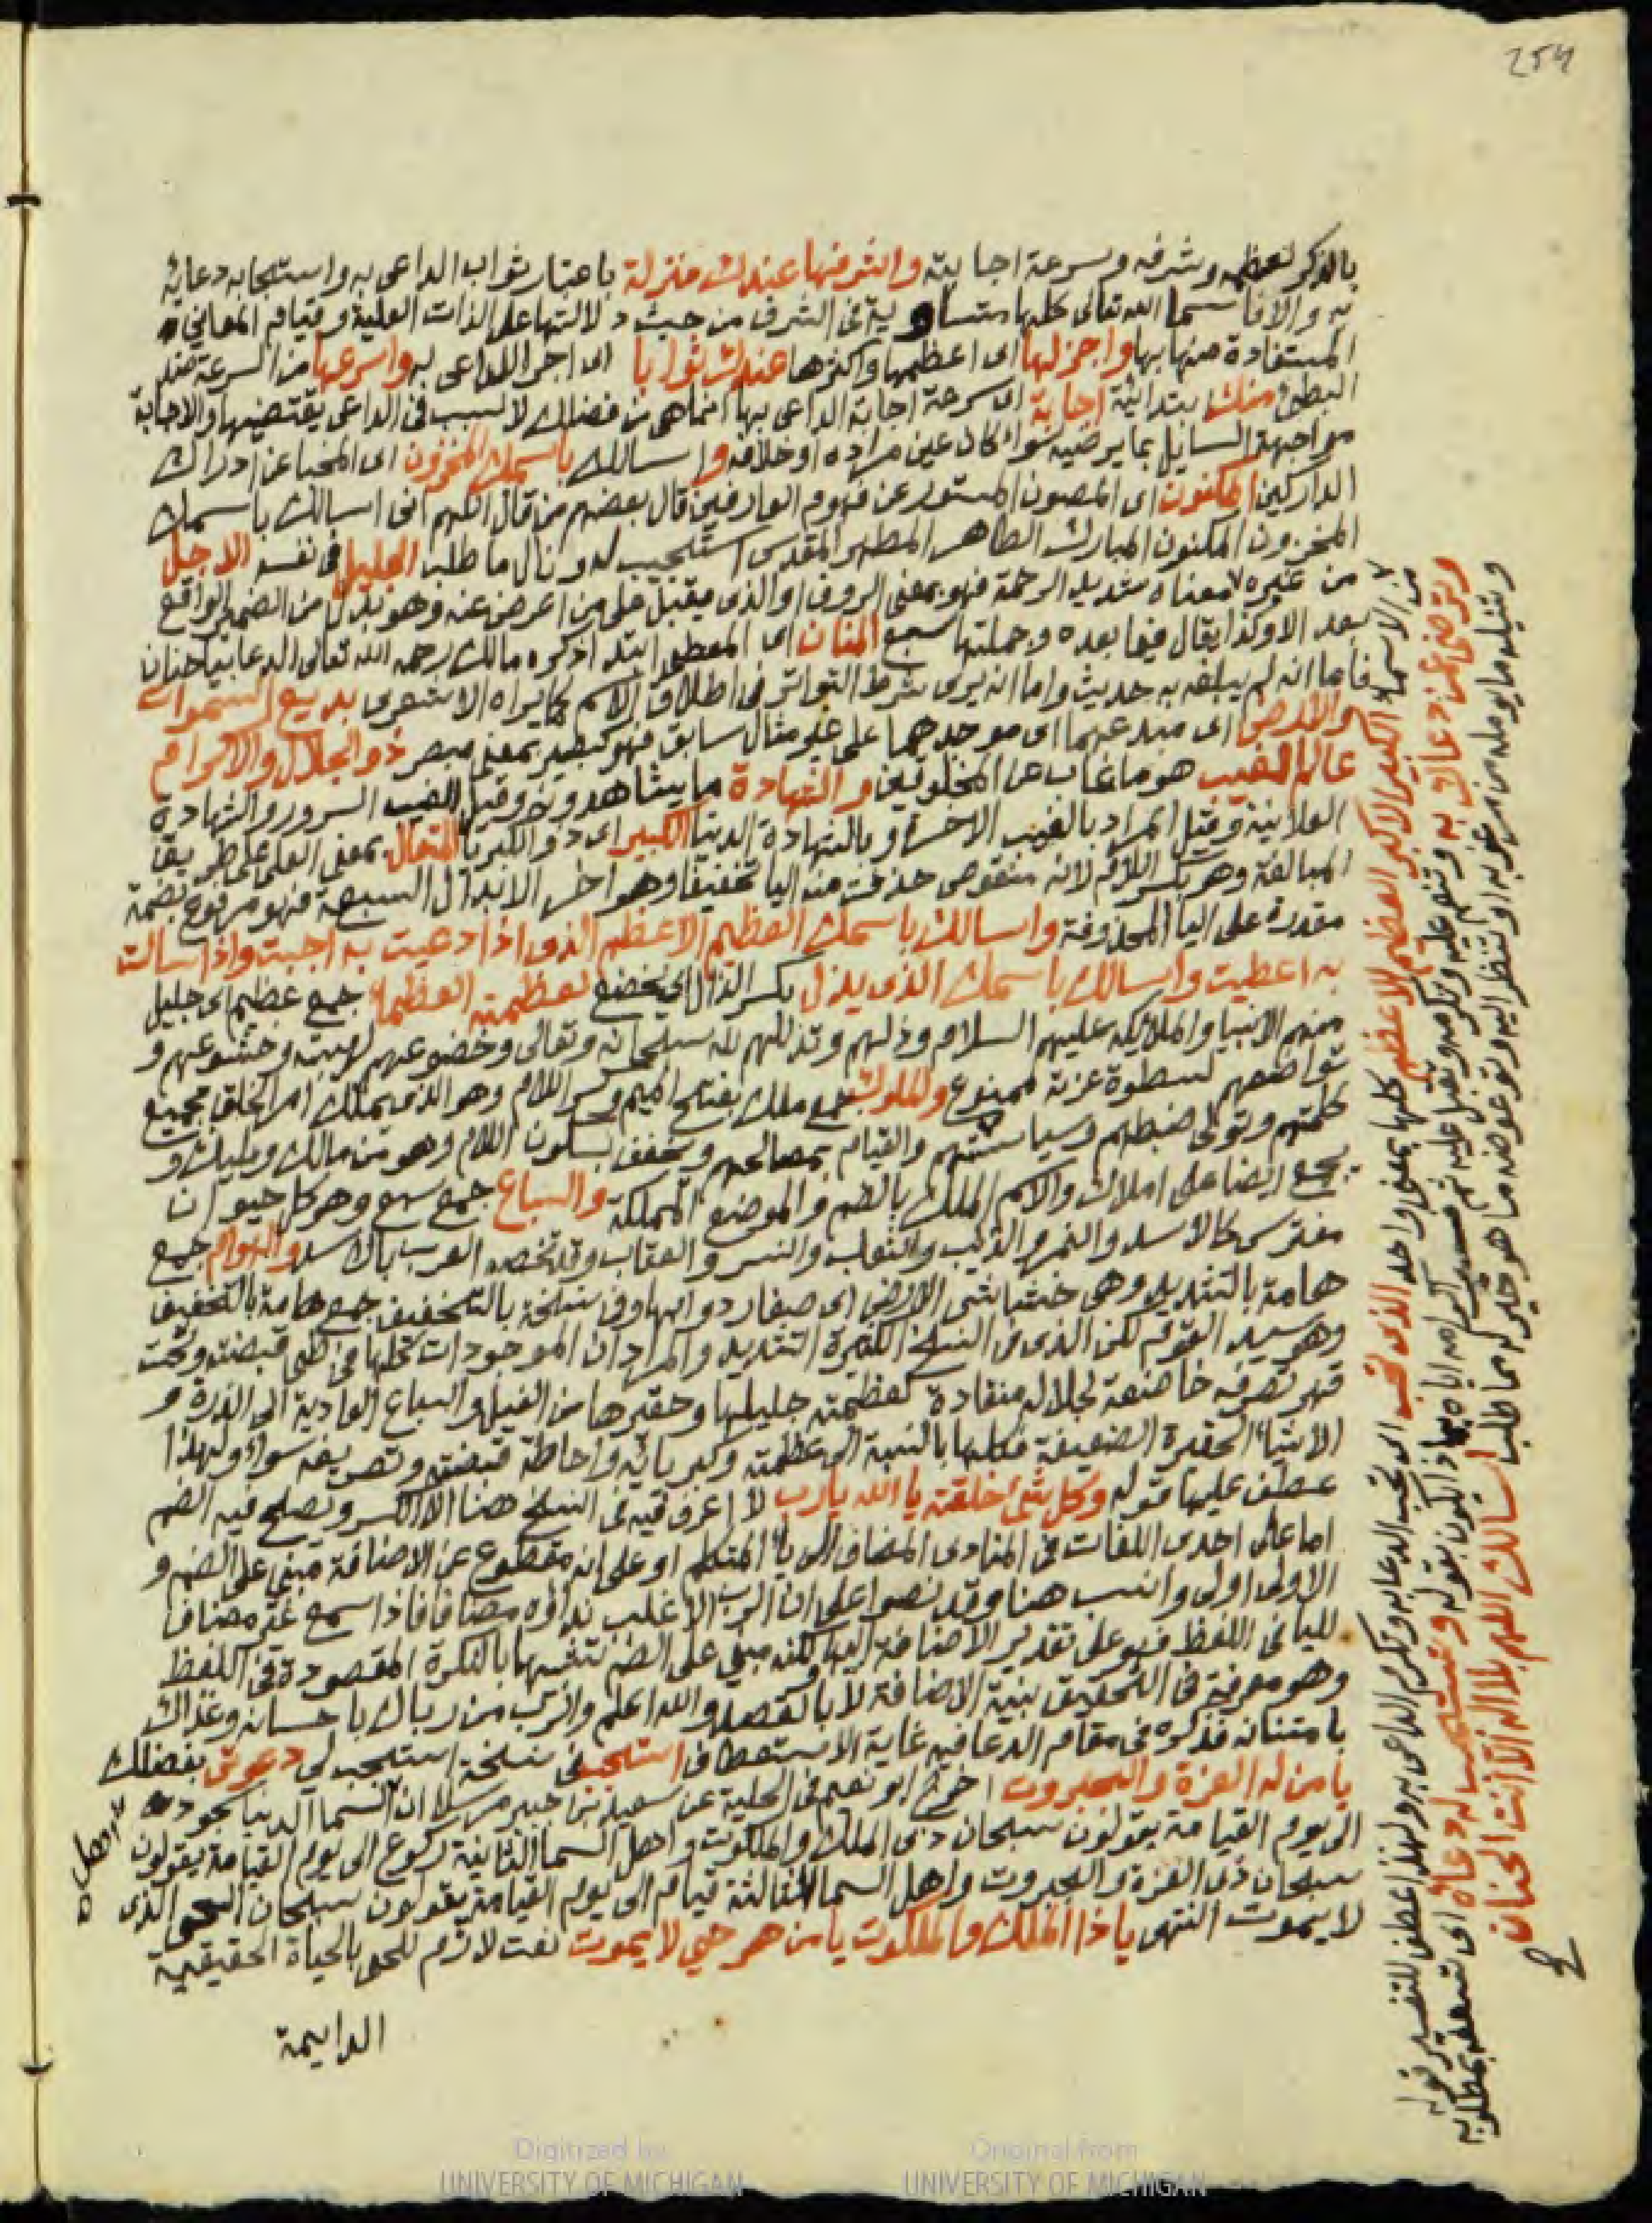 254
بالذكر لعظمه وشرفه وسرعة اجابته واشرفها عندك منزلة باعتبار ثواب الداعى به واستجابه دعائه
به والا فاسما الله تعالى كلها متساوية فى الشرف من حيث دلالتها على الذات العلية وقيام المعانى
المستفادة منها بها واجزلها اى اعظمها واكثرها عندك ثوابا اى اجر الداعى به واسرعها من السرعة ضد
البطئ منك ابتدائية اجابة اى سرعة اجابة الداعى بها انما هى من فضلك لا لسبب فى الداعى يقتضيها والاجابة
مواجهة السايل بما يرضيه سواء كان عين مراده او خلافه واسالك باسمك المخزون اى المخبا عن ادراك
الداركين المكنون اى المصون المستور عن فهوم العارفين قال بعضهم من قال اللهم انى اسالك باسمك
المخزون المكنون المبارك الطاهر المطهر المقدس استجيب له ونال ما طلب الجليل فى نفسه الاجل
من غيره معناه شديد الرحمة فهو بمعنى الروف او الذى يقبل على من اعرض عنه وهو بدل من الضمير الواقع
بعد الا وكذا يقال فيما بعده وجملتها سبع المنان اى المعطى ابتدا ذكره مالك رحمه الله تعالى الدعا بيا حنان
فاما انه لم يبلغه به حديث واما انه يرى شرط التواتر فى اطلاق الاسم كما يراه الاشعرى بديع السموات
والارض اى مبدعهما اى موجدهما على غير مثال سابق فهو كبصير بمعنى مبصر ذو الجلال والاكرام
عالم الغيب هو ما غاب عن المخلوقين والشهادة ما يشاهدونه وقيل الغيب السرور والشهادة
العلانية وقيل المراد بالغيب الاخرة وبالشهادة الدنيا الكبير اى ذو الكبريا المتعال بمعنى العلى على طريق
المبالغة وهو بكسر اللام لانه منقوص حذفت منه اليا تخفيفا وهو اخر الابدال السبعة فهو مرفوع بضمة
مقدرة على اليا المحذوفة واسالك باسمك العظيم الاعظم الذى اذا دعيت به اجبت واذا سالت
به اعطيت واسالك باسمك الذى يذل بكسر الذال اى يخضع لعظمته العظماء جمع عظيم اى جليل
منهم الانبيا والملايكه عليهم السلام وذلهم وتذللهم لله سبحانه وتعالى وخضوعهم لهيبته وخشوعهم و
تواضعهم لسطوة عزته ممنوع والملوك جمع ملك بفتح الميم وكسر اللام وهو الذى يملك امر الخلق بجميع
كلمتهم وتولى ضبطهم وسياستهم والقيام بمصالحهم ويخفف بسكون اللام وهو من مالك ومليك و
يجمع ايضا على املاك والاسم الملك بالضم والموضع المملكة والسباع جمع سبع وهو كل حيوان
مفترس كالاسد والنمر والذئب والثعلب والنسر والعقاب وقد تخصه العرب بالاسد والهوام جمع
هامة بالتشديد وهى خشاش الارض اى صغار دوابها وفى نسخة بالتخفيف جمع هامة بالتخفيف
وهو سيد القوم لكن الذى فى النسخ الكثيرة التشديد والمراد ان الموجودات كلها فى طى قبضته وتحت
قهر تصرفه خاضعة لجلاله منقادة لعظمته جليلها وحقيرها من الفيل والسباع العادية الى الذرة و
الاشياء الحقيرة الضعيفة فكلها بالنسبة الى عظمته وكبريائه واحاطة قبضته وتصريفه سواء ولهذا
عطف عليها قوله وكل شئ خلقته يا الله يا رب لا اعرف فيه فى النسخ هنا الا الكسر ويصلح فيه الضم
اما على احدى اللغات فى المنادى المضاف الى ياء المتكلم او على انه مقطوع عن الاضافة مبنى على الضم و
الاولى اولى وانسب هنا وقد نصوا على ان الرب الاغلب نداؤه مضافا فاذا سمع غير مضاف
لليا فى اللفظ فهو على تقدير الاضافة اليها لكنه مبنى على الضم تشبيها بالنكرة المقصودة فى اللفظ
وهو معرفة فى التحقيق بنية الاضافة لا بالقصد والله اعلم والرب من رباك باحسانه وغذاك
بامتنانه فذكره فى مقام الدعا فيه غاية الاستعطاف استجب فى نسخة استجب لى دعوتى بفضلك
يا من له العزة والجبروت اخرج ابو نعيم فى الحلية عن سعيد بن جبير مرسلا ان السما الدنيا سجود
الى يوم القيامة يقولون سبحان ذى الملك والملكوت واهل السما الثانية ركوع الى يوم القيامة يقولون
سبحان ذى العزة والجبروت واهل السما الثالثة قيام الى يوم القيامة يقولون سبحان الحى الذى
لا يموت انتهى يا ذا الملك والملكوت يا من هو حى لا يموت نعت لازم للحى بالحياة الحقيقية
الدايمة
اهل
من الاسماء الكبير الاكبر العظيم الاعظم كلها بمعنى واحد الذى تحب اى تحب الدعا به وتكرم الداعى به ولهذا عطف للتفسير قوله
وترضى عمن دعاك به وتنعم عليه وتكرمه وتقبل عليه ثم فسر اكرامه اياه بما ذا يكون بقوله وتستجيب له دعاءه اى تسعفه بمطلوبه
وتنيله ما يومله من مرغوبه او تنظر اليه وتعوضه ما هو خير له مما طلب اسالك اللهم بلا اله الا انت الحنان
Digitized by
UNIVERSITY OF MICHIGAN
Original from
UNIVERSITY OF MICHIGAN